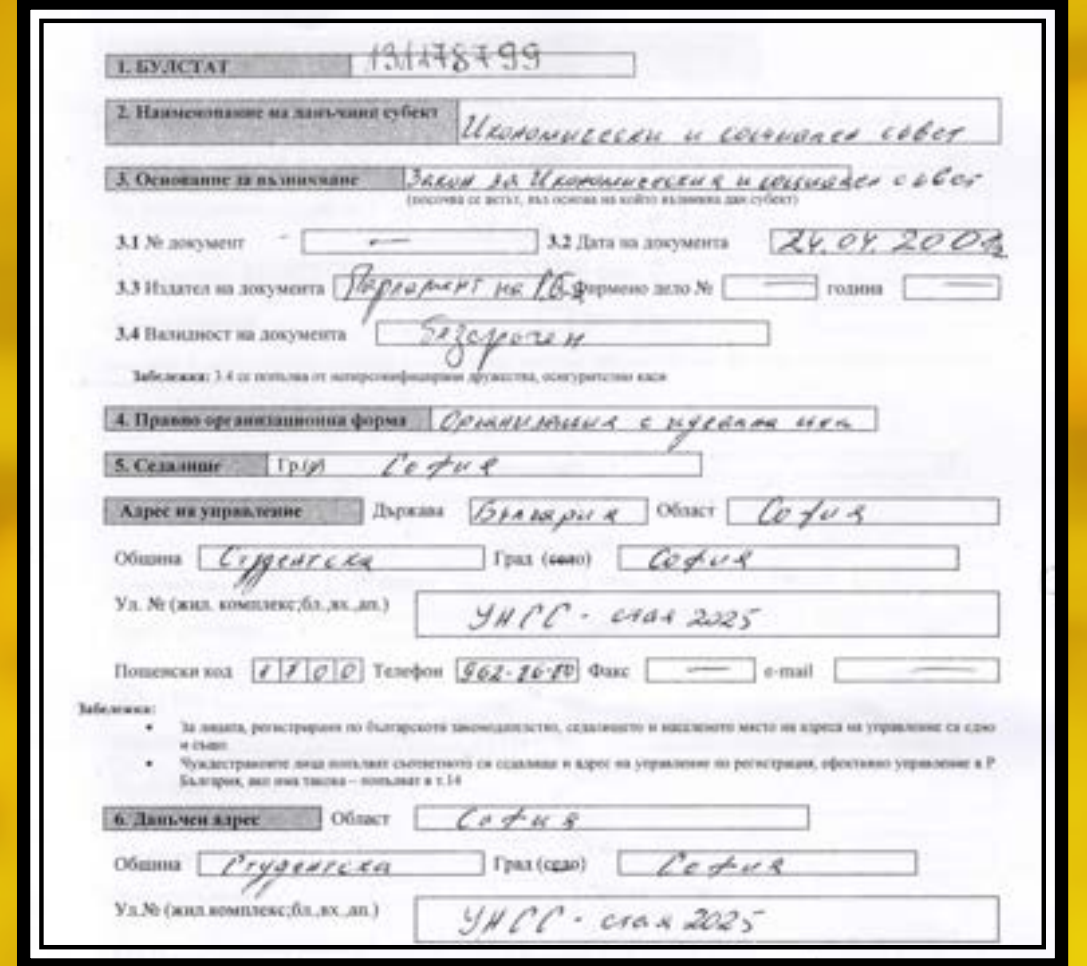 1. БУЛСТАТ 131178799
2. Наименование на данъчния субект Икономически и социален съвет
3. Основание за възникване Закон за Икономическия и социален съвет
(посочва се актът, въз основа на който възниква дан.субект)
3.1 № документ - — 3.2 Дата на документа 24.04.2001г
3.3 Издател на документа Парламент на РБ Фирмено дело № — година —
3.4 Валидност на документа Безсрочен
Забележка: 3.4 се попълва от неперсонифицирани дружества, осигурителни каси
4. Правно организационна форма Организация с идеална цел
5. Седалище Гр.(с) София
Адрес на управление Държава България Област София
Община Студентска Град (село) София
Ул. № (жил. комплекс;бл.,вх.,ап.) УНСС - стая 2025
Пощенски код 1700 Телефон 962-26-80 Факс — e-mail —
Забележка:
• За лицата, регистрирани по българското законодателство, седалището и населеното място на адреса на управление са едно
и също
• Чуждестранните лица попълват съответното си седалище и адрес на управление по регистрация, ефективно управление в Р
България, ако има такова – попълват в т.14
6. Данъчен адрес Област София
Община Студентска Град (село) София
Ул.№ (жил.комплекс;бл.,вх.,ап.) УНСС - стая 2025